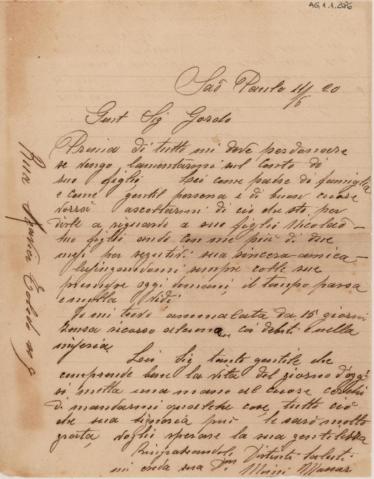 AG.1.1.
São Paulo 11/5 20
Gent Sig
Prima di tutto mi deve perdonare
se vengo lamentarmi sul conto di
suo figlio Lei come padre di famiglia
e come gentil persona e di buon cuore
vorrà ascoltarmi di ciò che sto per
dirle a riguardo a suo figlio Nicolao
suo figlio andò con me più di due
mesi per la sua sincera amica
lusingandomi sempre colle sue
promesse oggi domani, il tempo passa
e nulla vidi
Io mi trovo ammalata da 15 giorni
senza risorso alcuna coi debiti e nella
miseria
Lei Sig tanto gentile che
comprende bene la vita del giorno d'oggi
si metta una mano al cuore
di mandarmi qualche cosa tutto ciò
che sua signoria può le sarò molto
grata, voglio sperare la sua gentilezza
Ringraziandola Distinti saluti
mi creda sua
Rua